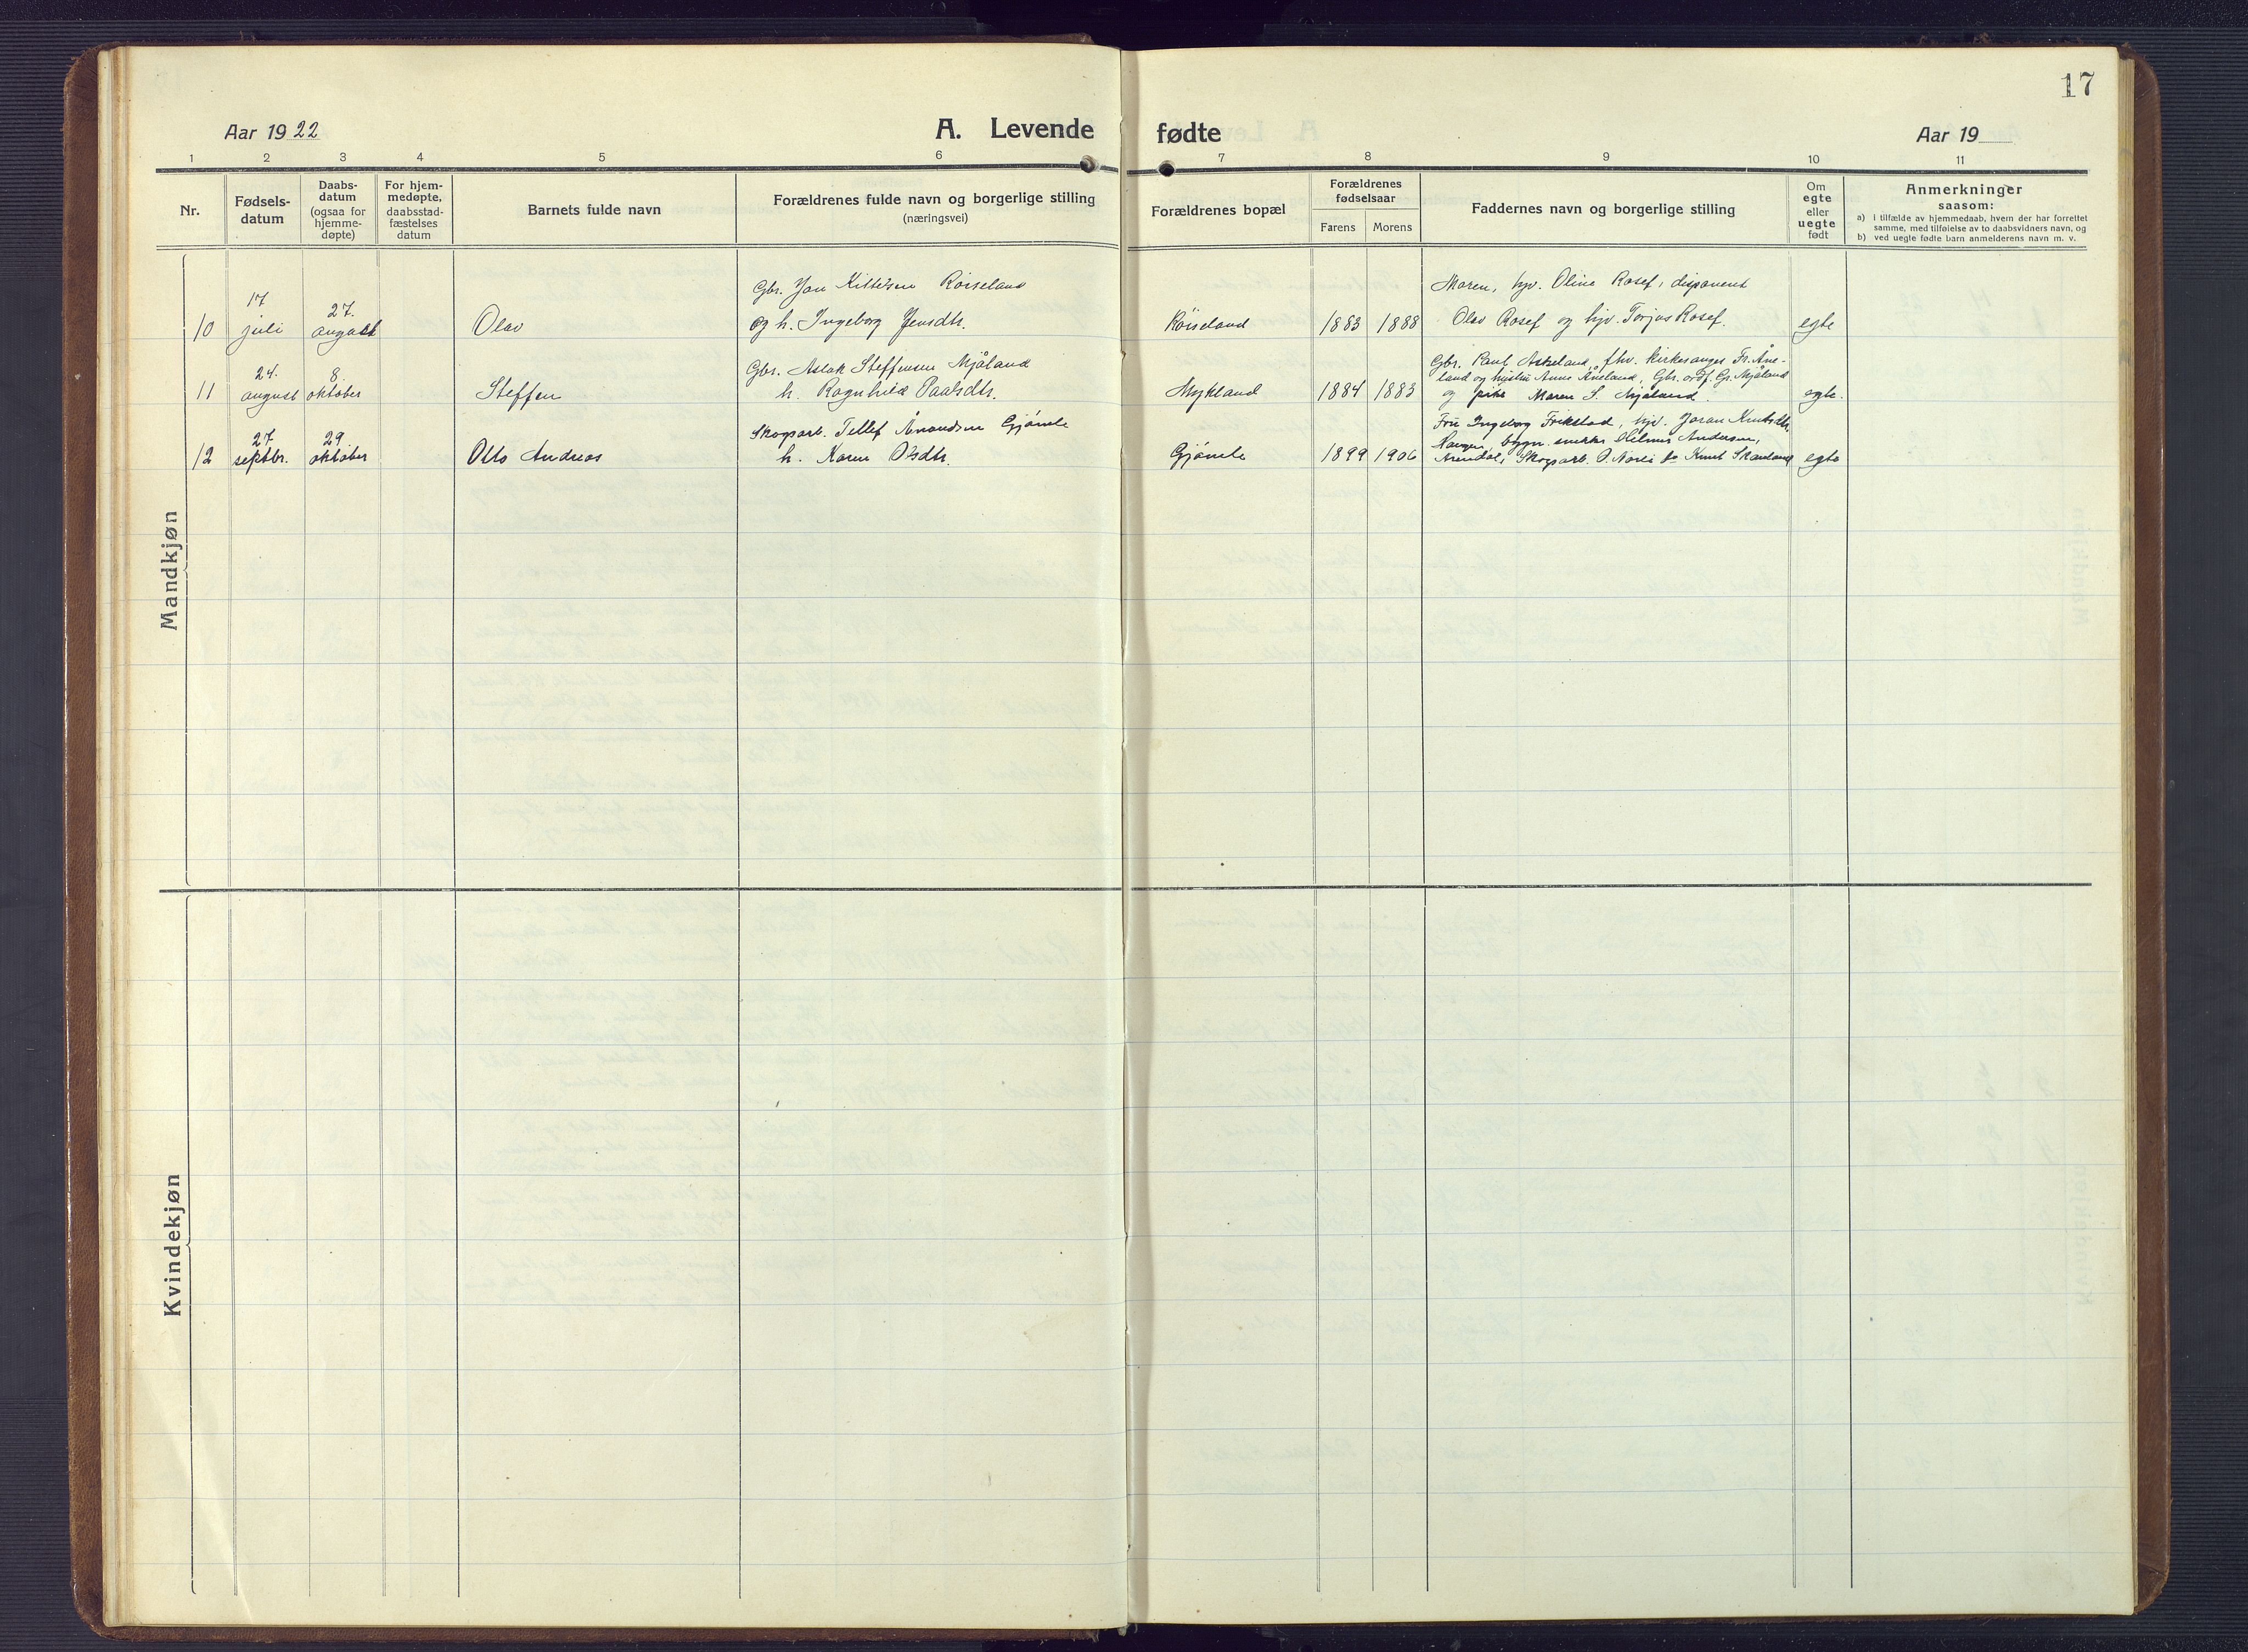 17
Aar 1922
A. Levende fødte
Aar 19
1 2 3 4 5 6 7 8 9 10 11
Nr.
Fødsels-
datum
Daabs-
datum
(ogsaa for
hjemme-
døpte)
For hjem-
medøpte,
daabsstad-
fæstelses
datum
Barnets fulde navn
Forældrenes fulde navn og borgerlige stilling
(næringsvei)
Forældrenes bopæl
Forældrenes
fødselsaar
Farens Morens
Faddernes navn og borgerlige stilling
Om
egte
eller
uegte
født
Anmerkninger
saasom:
a) i tilfælde av hjemmedaab, hvem der har forrettet
samme, med tilføielse av to daabsvidners navn, og
b) ved uegte fødte barn anmelderens navn m. v.
Mandkjøn
10
17
juli
27.
august
Olav
Gbr. Jon Kittelsen Røiseland
og h. Ingeborg Jensdtr.
Røiseland
1883 1888
Maren, hjv. Oline Rosef, disponent
Olav Rosef og hjv. Torjus Rosef.
egte
11
24.
august
8.
oktober
Steffen
Gbr. Aslak Steffensen Mjåland
h. Ragnhild Paalsdtr.
Mykland
1884 1883
Gbr. Paul Askeland, fhv. kirkesanger Fr. Åne-
land og hustru Anne Åneland, Gbr. ordf. Gr. Mjåland
og pike Maren S. Mjåland.
egte.
12
27
septbr.
29
oktober
Otto Andreas
Skogsarb. Tellef Ånondsen Gjømle
h. Karen Olsdtr.
Gjømle
1899 1906
Fru Ingeborg Frikstad, hjv. Joran Knutsdtr.
Haugen, bygn. snekker Helmer Andersen,
Arendal, Skogsarb. O. Norli do Knut Skaaland
egte
Kvindekjøn